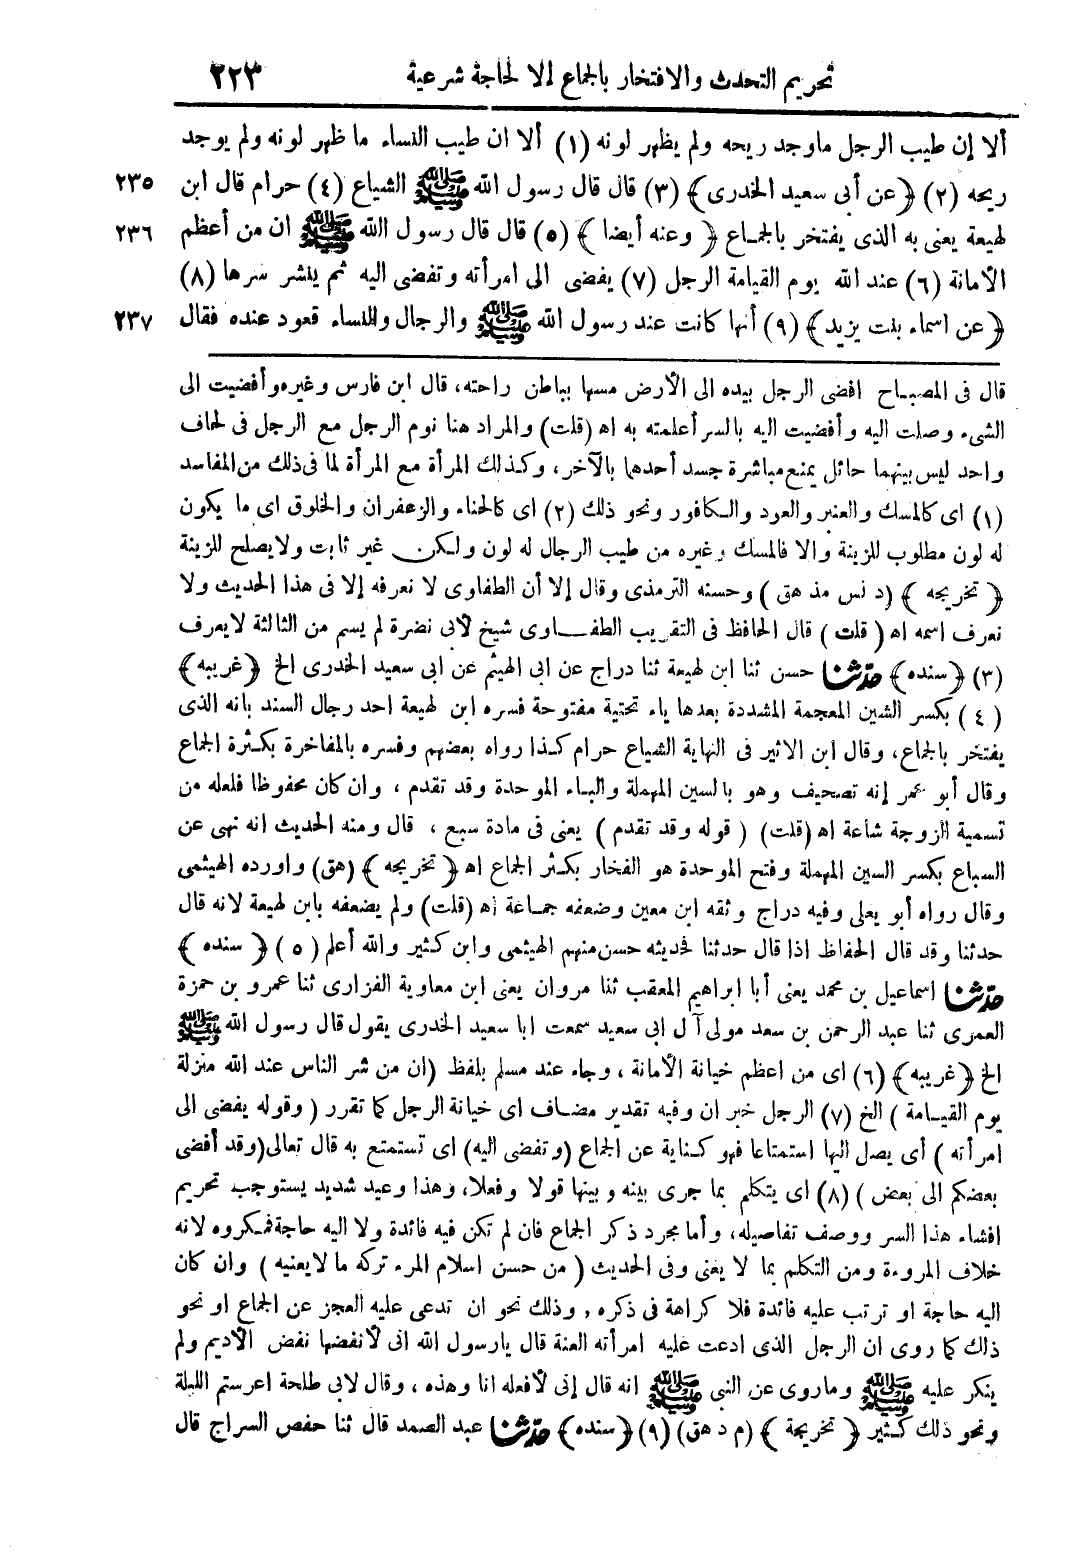 تحريم التحدث والافتخار بالجماع إلا لحاجة شرعية ٢٢٣
ألا إن طيب الرجل ماوجد ريحه ولم يظهر لونه (١) ألا ان طيب النساء ما ظهر لونه ولم يوجد
ريحه (٢) ﴿عن أبى سعيد الخدرى﴾ (٣) قال قال رسول الله ﷺ الشياع (٤) حرام قال ابن ٢٣٥
لهيعة يعنى به الذى يفتخر بالجماع ﴿وعنه أيضا﴾ (٥) قال قال رسول الله ﷺ ان من أعظم ٢٣٦
الأمانة (٦) عند الله يوم القيامة الرجل (٧) يفضى الى امرأته وتفضى اليه ثم ينشر سرها (٨)
﴿عن اسماء بنت يزيد﴾ (٩) أنها كانت عند رسول الله ﷺ والرجال والنساء قعود عنده فقال ٢٣٧
قال فى المصباح افضى الرجل بيده الى الأرض مسها بباطن راحته، قال ابن فارس وغيره وأفضيت الى
الشىء وصلت اليه وأفضيت اليه بالسر أعلمته به اه (قلت) والمراد هنا نوم الرجل مع الرجل فى لحاف
واحد ليس بينهما حائل يمنع مباشرة جسد أحدهما بالآخر، وكذلك المرأة مع المرأة لما فى ذلك من المفاسد
(١) اى كالمسك والعنبر والعود والكافور ونحو ذلك (٢) اى كالحناء والزعفران والخلوق اى ما يكون
له لون مطلوب للزينة والا فالمسك وغيره من طيب الرجال له لون ولكن غير ثابت ولا يصلح للزينة
﴿تخريجه﴾ (د نس مذ هق) وحسنه الترمذى وقال إلا أن الطفاوى لا نعرفه إلا فى هذا الحديث ولا
نعرف اسمه اه (قلت) قال الحافظ فى التقريب الطفاوى شيخ لأبى نضرة لم يسم من الثالثة لايعرف
(٣) ﴿سنده﴾ حدّثنا حسن ثنا ابن لهيعة ثنا دراج عن ابى الهيثم عن ابى سعيد الخدرى الخ ﴿غريبه﴾
(٤) بكسر الشين المعجمة المشددة بعدها ياء تحتية مفتوحة فسره ابن لهيعة احد رجال السند بانه الذى
يفتخر بالجماع، وقال ابن الاثير فى النهاية الشياع حرام كذا رواه بعضهم وفسره بالمفاخرة بكثرة الجماع
وقال أبو عمر إنه تصحيف وهو بالسين المهملة والباء الموحدة وقد تقدم، وان كان محفوظا فلعله من
تسمية الزوجة شاعة اه (قلت) (قوله وقد تقدم) يعنى فى مادة سبع، قال ومنه الحديث انه نهى عن
السباع بكسر السين المهملة وفتح الموحدة هو الفخار بكثر الجماع اه ﴿تخريجه﴾ (هق) واورده الهيثمى
وقال رواه أبو يعلى وفيه دراج وثقه ابن معين وضعفه جماعة اه (قلت) ولم يضعفه بابن لهيعة لانه قال
حدثنا وقد قال الحفاظ اذا قال حدثنا فحديثه حسن منهم الهيثمى وابن كثير والله أعلم (٥) ﴿سنده﴾
حدّثنا اسماعيل بن محمد يعنى أبا ابراهيم المعقب ثنا مروان يعنى ابن معاوية الفزارى ثنا عمرو بن حمزة
العمرى ثنا عبد الرحمن بن سعد مولى آل ابى سعيد سمعت ابا سعيد الخدرى يقول قال رسول الله ﷺ
الخ ﴿غريبه﴾ (٦) اى من اعظم خيانة الأمانة، وجاء عند مسلم بلفظ (ان من شر الناس عند الله منزلة
يوم القيامة) الخ (٧) الرجل خبر ان وفيه تقدير مضاف اى خيانة الرجل كما تقرر (وقوله يفضى الى
امرأته) أى يصل اليها استمتاعا فهو كناية عن الجماع (وتفضى اليه) اى تستمتع به قال تعالى (وقد أفضى
بعضكم الى بعض) (٨) اى يتكلم بما جرى بينه وبينها قولا وفعلا، وهذا وعيد شديد يستوجب تحريم
افشاء هذا السر ووصف تفاصيله، وأما مجرد ذكر الجماع فان لم تكن فيه فائدة ولا اليه حاجة فمكروه لانه
خلاف المروءة ومن التكلم بما لا يغنى وفى الحديث (من حسن اسلام المرء تركه ما لايعنيه) وان كان
اليه حاجة او ترتب عليه فائدة فلا كراهة فى ذكره، وذلك نحو ان تدعى عليه العجز عن الجماع او نحو
ذلك كما روى ان الرجل الذى ادعت عليه امرأته العنة قال يارسول الله انى لأنفضها نفض الأديم ولم
ينكر عليه ﷺ وماروى عن النبى ﷺ انه قال إنى لأفعله انا وهذه، وقال لابى طلحة اعرستم الليلة
ونحو ذلك كثير ﴿تخريجة﴾ (م د هق) (٩) ﴿سنده﴾ حدّثنا عبد الصمد قال ثنا حفص السراج قال